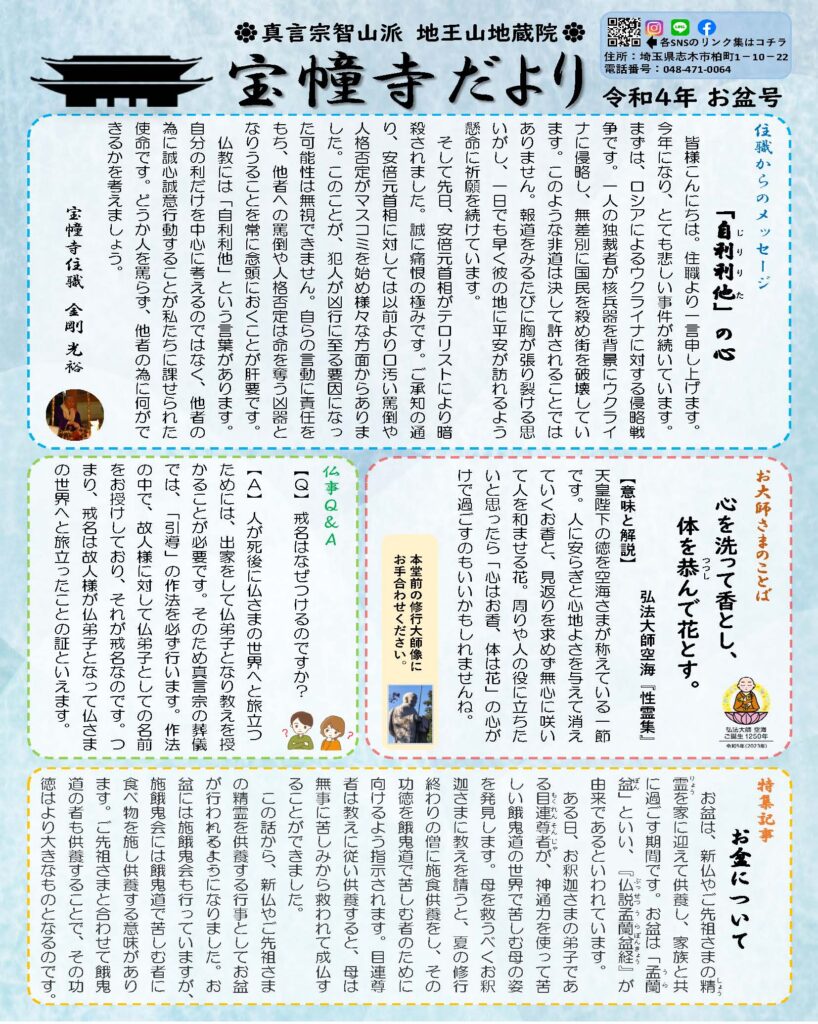 真言宗智山派 地王山地蔵院
宝幢寺だより
各SNSのリンク集はコチラ
住所：埼玉県志木市柏町1－10－22
電話番号：048-471-0064
令和4年 お盆号
住職からのメッセージ
「自利利他」の心
じりりた
皆様こんにちは。住職より一言申し上げます。
今年になり、とても悲しい事件が続いています。
まずは、ロシアによるウクライナに対する侵略戦
争です。一人の独裁者が核兵器を背景にウクライ
ナに侵略し、無差別に国民を殺め街を破壊してい
ます。このような非道は決して許されることでは
ありません。報道をみるたびに胸が張り裂ける思
いがし、一日でも早く彼の地に平安が訪れるよう
懸命に祈願を続けています。
そして先日、安倍元首相がテロリストにより暗
殺されました。誠に痛恨の極みです。ご承知の通
り、安倍元首相に対しては以前より口汚い罵倒や
人格否定がマスコミを始め様々な方面からありま
した。このことが、犯人が凶行に至る要因になっ
た可能性は無視できません。自らの言動に責任を
もち、他者への罵倒や人格否定は命を奪う凶器と
なりうることを常に念頭におくことが肝要です。
仏教には「自利利他」という言葉があります。
自分の利だけを中心に考えるのではなく、他者の
為に誠心誠意行動することが私たちに課せられた
使命です。どうか人を罵らず、他者の為に何がで
きるかを考えましょう。
宝幢寺住職 金剛 光裕
お大師さまのことば
心を洗って香とし、
体を恭んで花とす。
つつし
弘法大師空海『性霊集』
弘法大師 空海
ご誕生1250年
令和5年(2023年)
【意味と解説】
天皇陛下の徳を空海さまが称えている一節
です。人に安らぎと心地よさを与えて消え
ていくお香と、見返りを求めず無心に咲い
て人を和ませる花。周りや人の役に立ちた
いと思ったら「心はお香、体は花」の心が
けで過ごすのもいいかもしれませんね。
本堂前の修行大師像に
お手合わせください。
仏事Q&A
【Q】 戒名はなぜつけるのですか？
【A】 人が死後に仏さまの世界へと旅立つ
ためには、出家をして仏弟子となり教えを授
かることが必要です。そのため真言宗の葬儀
では、「引導」の作法を必ず行います。作法
の中で、故人様に対して仏弟子としての名前
をお授けしており、それが戒名なのです。つ
まり、戒名は故人様が仏弟子となって仏さま
の世界へと旅立ったことの証といえます。
特集記事
お盆について
お盆は、新仏やご先祖さまの精
しょう
霊を家に迎えて供養し、家族と共
りょう
に過ごす期間です。お盆は「盂蘭
うら
盆」といい、『仏説盂蘭盆経』が
ぼん
ぶっせつうらぼんきょう
由来であるといわれています。
ある日、お釈迦さまの弟子であ
る目連尊者が、神通力を使って苦
もくれんそんじゃ
しい餓鬼道の世界で苦しむ母の姿
を発見します。母を救うべくお釈
迦さまに教えを請うと、夏の修行
終わりの僧に施食供養をし、その
功徳を餓鬼道で苦しむ者のために
向けるよう指示されます。目連尊
者は教えに従い供養すると、母は
無事に苦しみから救われて成仏す
ることができました。
この話から、新仏やご先祖さま
の精霊を供養する行事としてお盆
が行われるようになりました。お
盆には施餓鬼会も行っていますが、
施餓鬼会には餓鬼道で苦しむ者に
食べ物を施し供養する意味があり
ます。ご先祖さまと合わせて餓鬼
道の者も供養することで、その功
徳はより大きなものとなるのです。